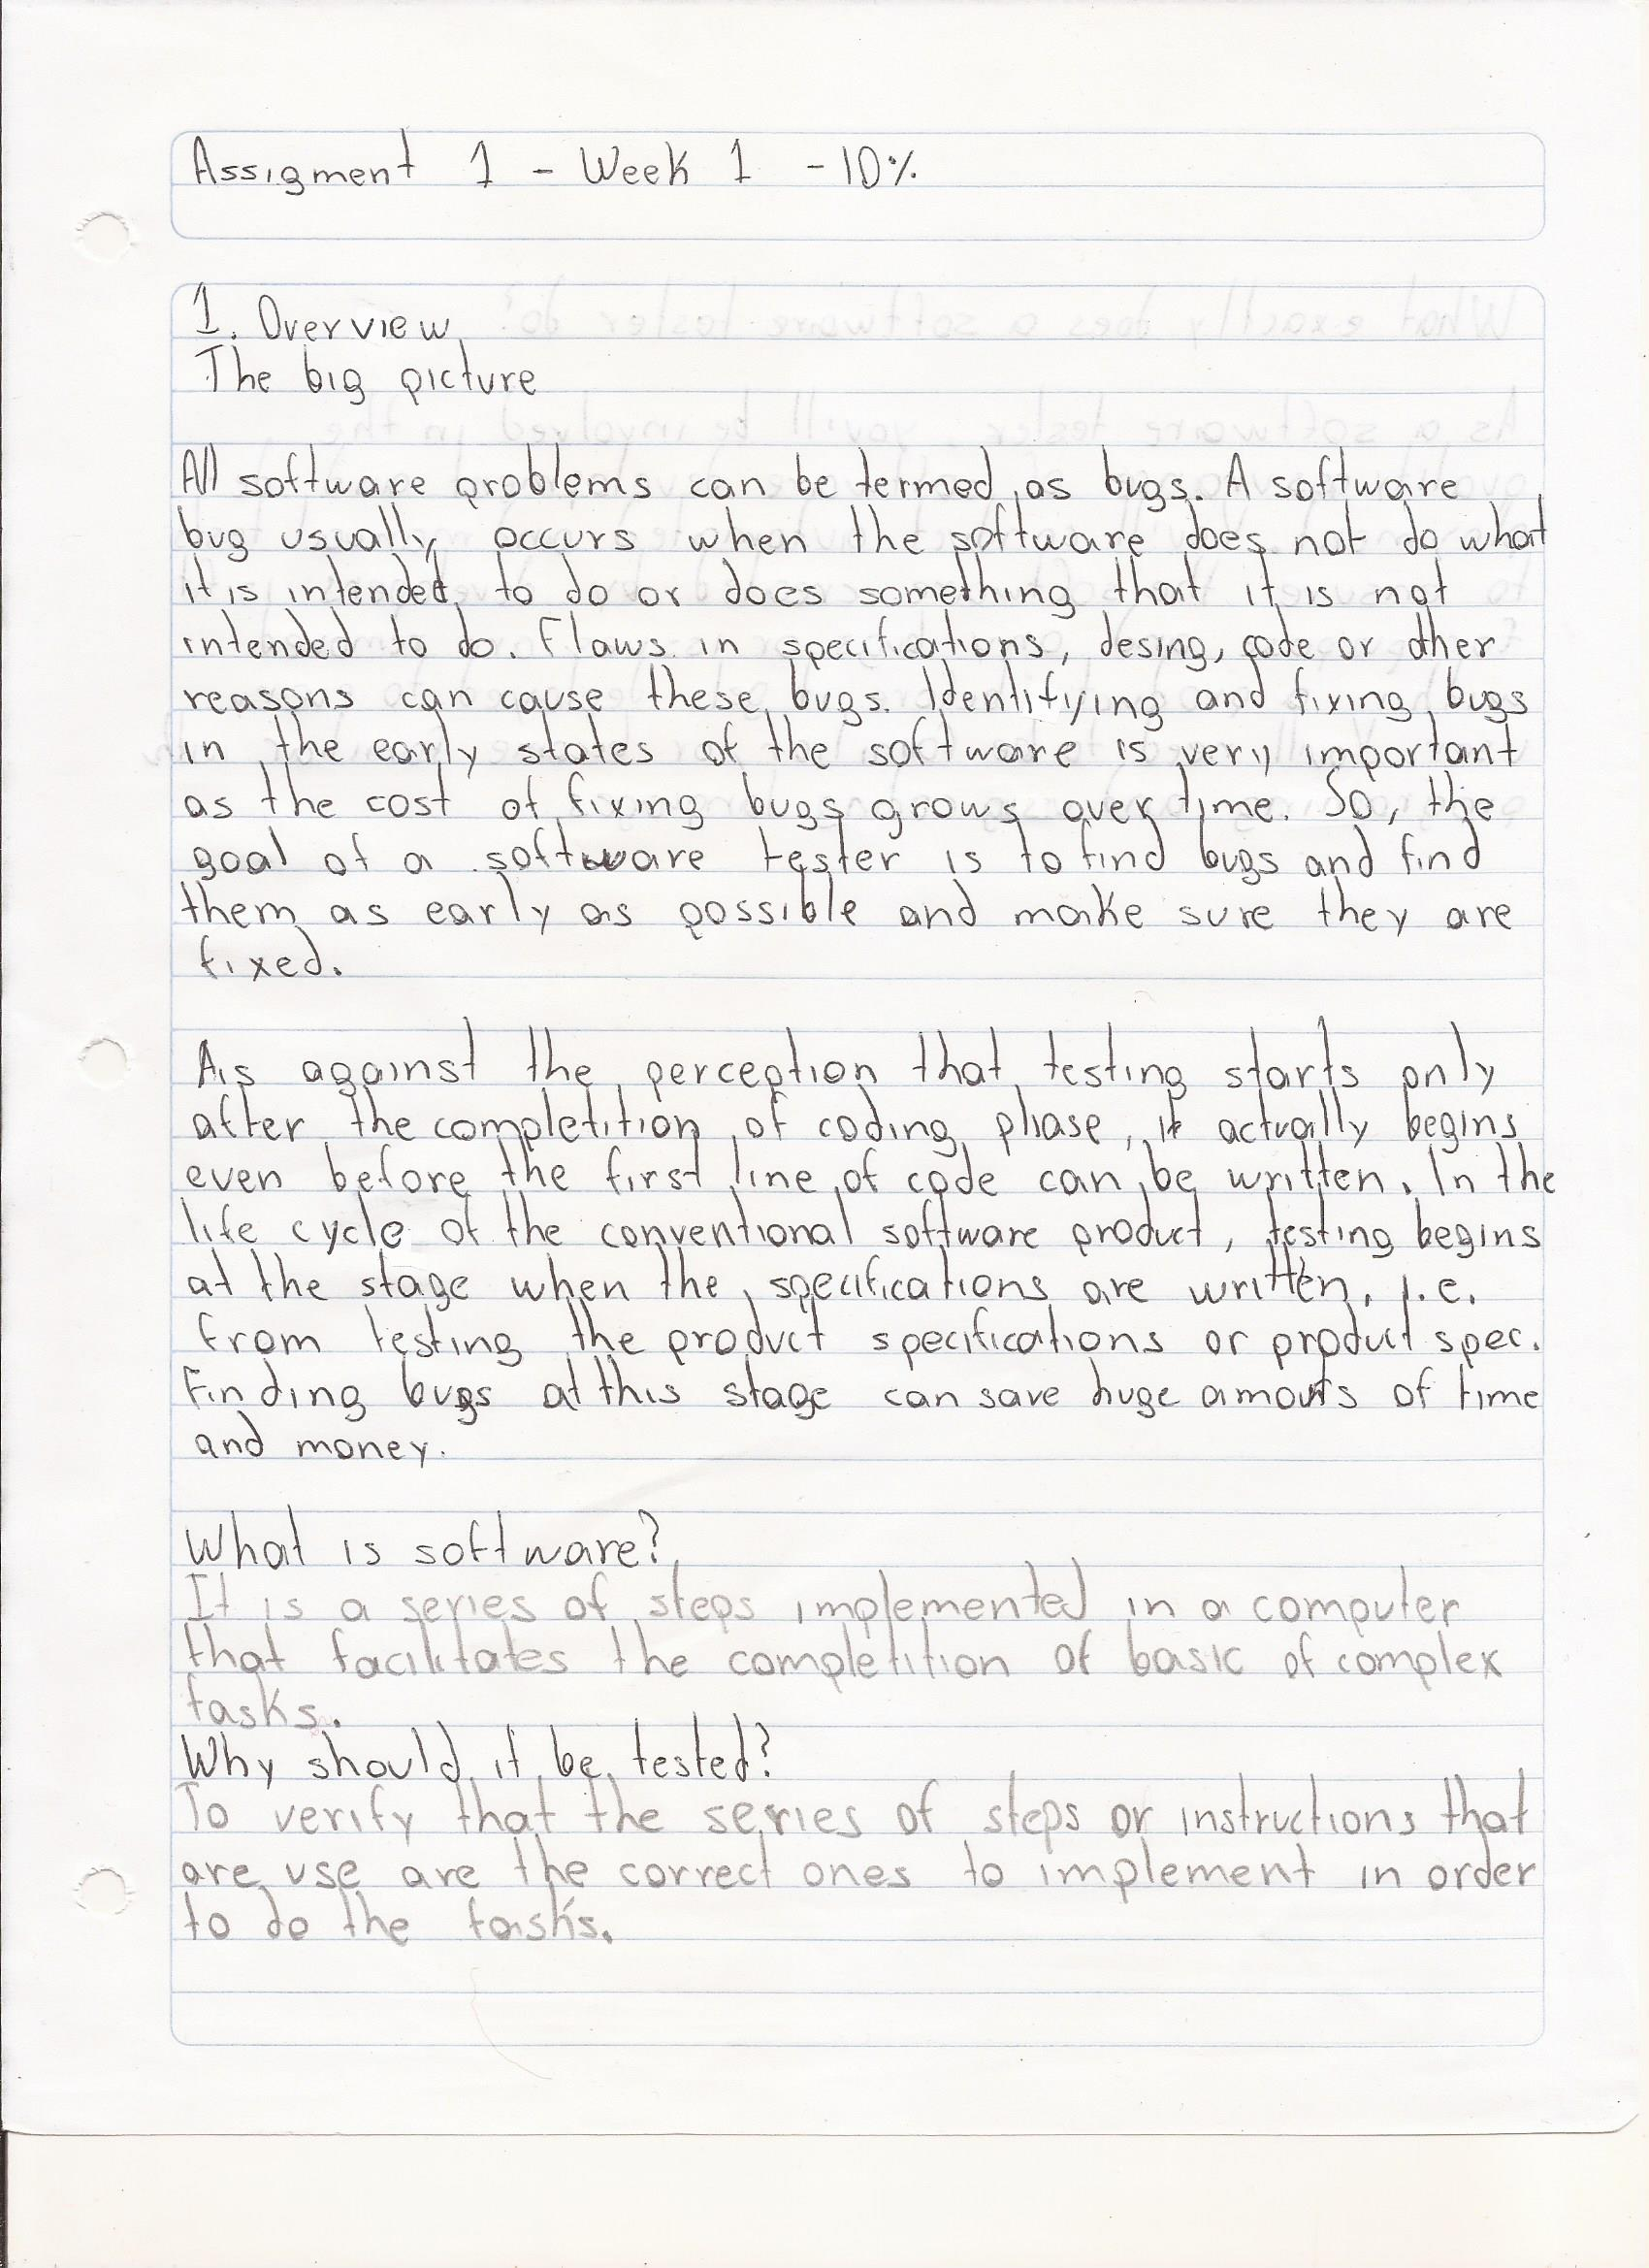 Assigment 1 - Week 1 - 10%
1. Overview
The big picture
All software problems can be termed as bugs. A software
bug usually occurs when the software does not do what
it is intended to do or does something that it is not
intended to do. Flaws in specifications, desing, code or other
reasons can cause these bugs. Identifying and fixing bugs
in the early states of the software is very important
as the cost of fixing bugs grows over time. So, the
goal of a software tester is to find bugs and find
them as early as possible and make sure they are
fixed.
As against the perception that testing starts only
after the completition of coding phase, it actually begins
even before the first line of code can be written. In the
life cycle of the conventional software product, testing begins
at the stage when the specifications are written, i.e.
from testing the product specifications or product spec.
Finding bugs at this stage can save huge amouts of time
and money.
What is software?
It is a series of steps implemented in a computer
that facilitates the completition of basic of complex
tasks.
Why should it be tested?
To verify that the series of steps or instructions that
are use are the correct ones to implement in order
to do the tasks.